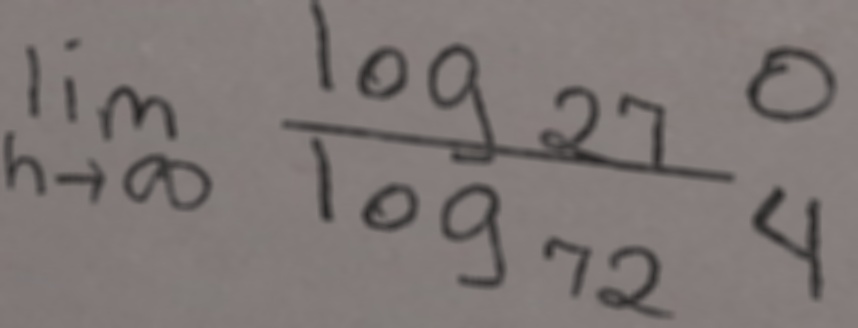 lim h→∞ log_27 0 / log_72 4